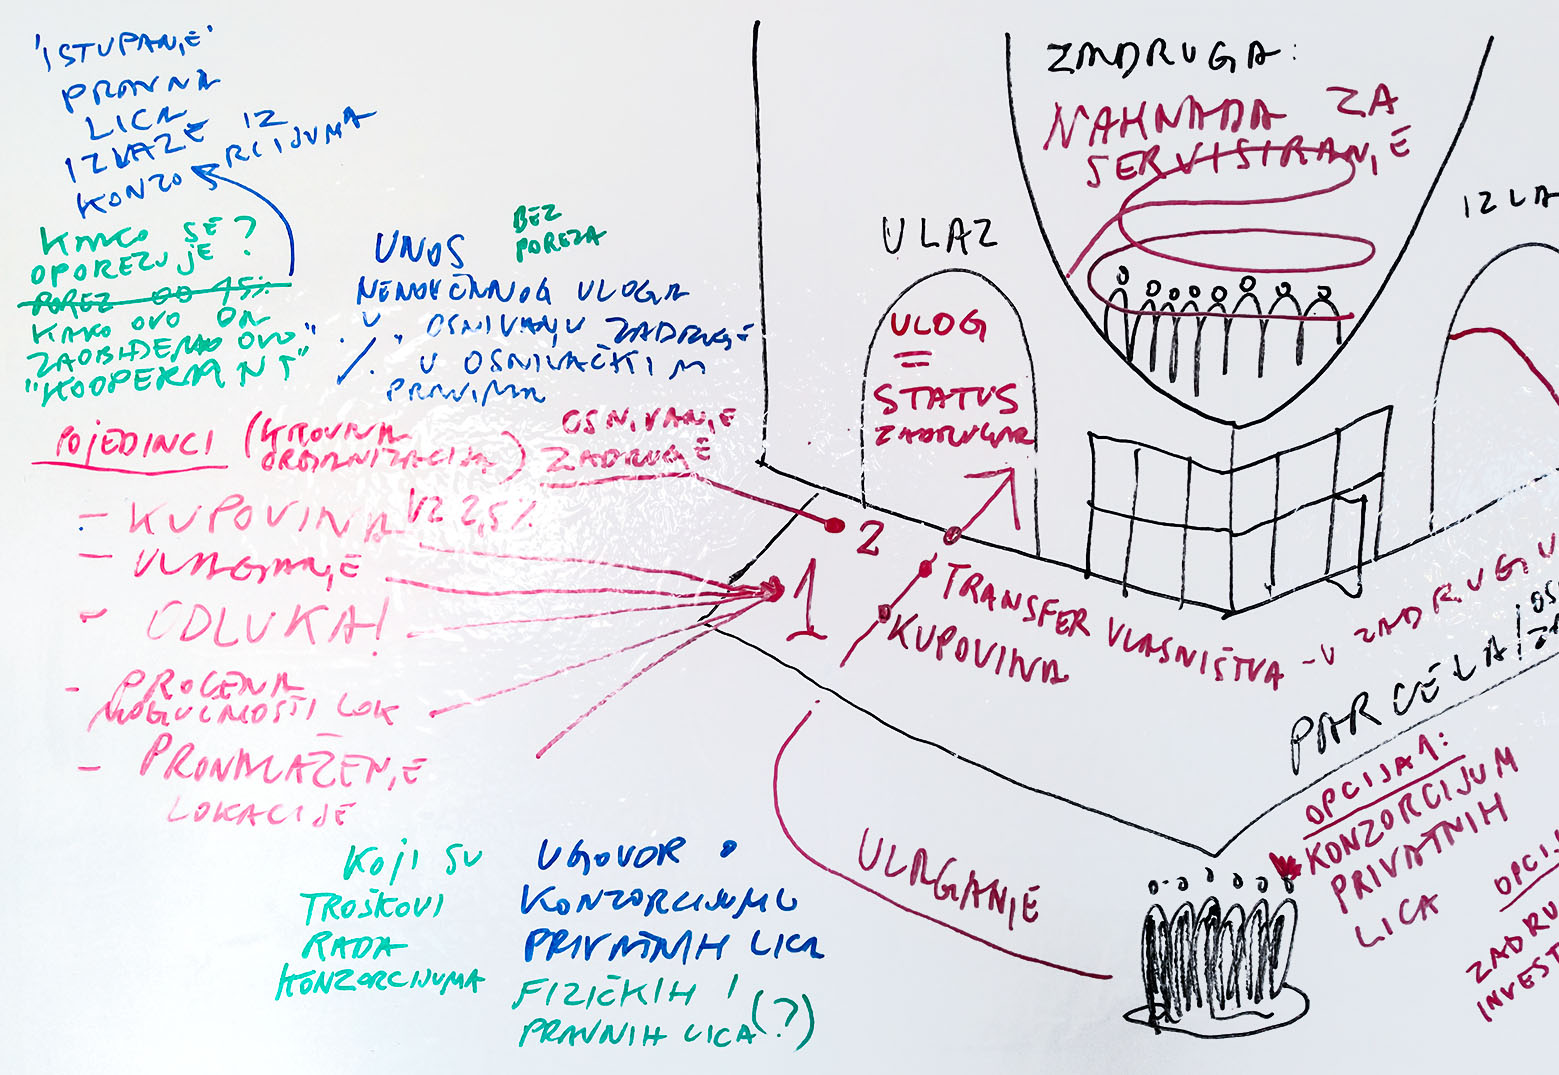 'ISTUPANJE'
PRAVNA
LICA
IZLAZE IZ
KONZORCIJUMA
KAKO SE ?
OPOREZUJE
POREZ OD 15%
KAKO OVO DA
ZAOBIĐEMO OVO"
"KOOPERANT"
UNOS
BEZ
POREZA
NENOVČANOG ULOGA
U OSNIVANJU ZADRUGE
U OSNIVAČKIM
PRAVIMA
POJEDINCI (KROVNA
ORGANIZACIJA)
OSNIVANJE
ZADRUGE
- KUPOVINA UZ 2,5%
- ULAGANJE
- ODLUKA!
- PROCENA
MOGUĆNOSTI LOK
- PRONALAŽENJE
LOKACIJE
KOJI SU
TROŠKOVI
RADA
KONZORCIJUMA
UGOVOR O
KONZORCIJUMU
PRIVATNIH LICA
FIZIČKIH I
PRAVNIH LICA (?)
ZADRUGA:
NAKNADA ZA
SERVISIRANJE
ULAZ
IZLA
ULOG
=
STATUS
ZADRUGAR
2
1
TRANSFER VLASNIŠTVA - U ZADRUGU
KUPOVINA
PARCELA /
ULAGANJE
OPCIJA 1:
KONZORCIJUM
PRIVATNIH
LICA
OPCIJ
ZADRU
INVEST